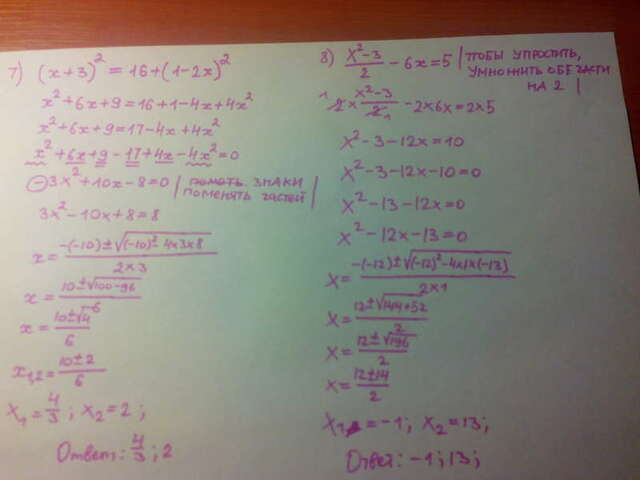 7) (x+3)² = 16+(1-2x)²
x²+6x+9=16+1-4x+4x²
x²+6x+9=17-4x+4x²
x²+6x+9-17+4x-4x²=0
-3x²+10x-8=0 | знаки
поменять частей |
3x²-10x+8=8
x= -(-10)±√(-10)²-4×3×8 / 2×3
x= 10±√100-96 / 6
x= 10±√4 / 6
x1,2= 10±2 / 6
x1= 4/3; x2=2;
Ответ: 4/3; 2
8) x²-3 / 2 - 6x=5 | чтобы упростить,
умножить обе части
на 2 |
2× x²-3 / 2 - 2×6x=2×5
x²-3-12x=10
x²-3-12x-10=0
x²-13-12x=0
x²-12x-13=0
x= -(-12)±√(-12)²-4×1×(-13) / 2×1
x= 12±√144+52 / 2
x= 12±√196 / 2
x= 12±14 / 2
x1=-1; x2=13;
Ответ: -1; 13;